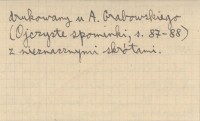 drukowany u A. Grabowskiego
(Ojczyste spominki, s. 87-88)
z nieznacznymi skrótami.